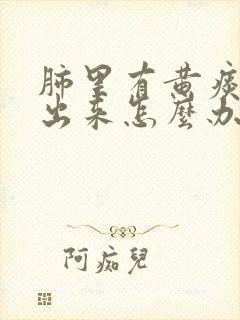 肺里有黄痰
出来怎麽办
阿痴兒